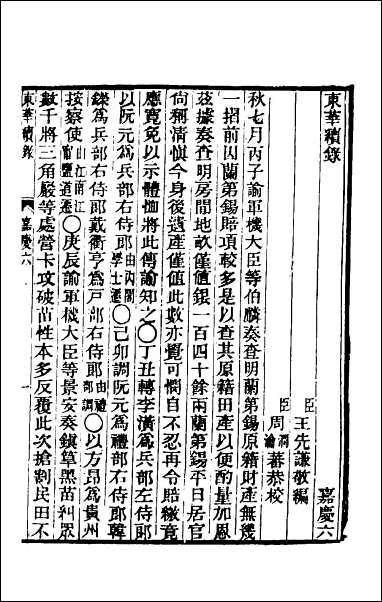 東華續錄　嘉慶六
臣王先謙敬編
臣周潤瀹蕃恭校
秋七月丙子諭軍機大臣等伯麟奏查明蘭第錫原籍財產無幾
一招前因蘭第錫賠項較多是以查其原籍田產以便酌量加恩
茲據奏查明房間地畝僅值銀一百四十餘兩蘭第錫平日居官
尚稱清慎今身後遺產僅值此數亦覺可憫自不忍再令賠繳竟
應寬免以示體恤將此傳諭知之〇丁丑轉李潢爲兵部左侍郎
以阮元爲兵部右侍郎由內閣學士遷〇己卯調阮元爲禮部右侍郎韓
鑅爲兵部右侍郎戴衢亨爲戶部右侍郎由禮部調〇以方昂爲貴州
按察使由江南江甯鹽道遷〇庚辰諭軍機大臣等景安奏鎭筸黑苗糾眾
數千將三角巖等處營卡攻破苗性本多反覆此次搶割民田不
東華續錄　嘉慶六　一